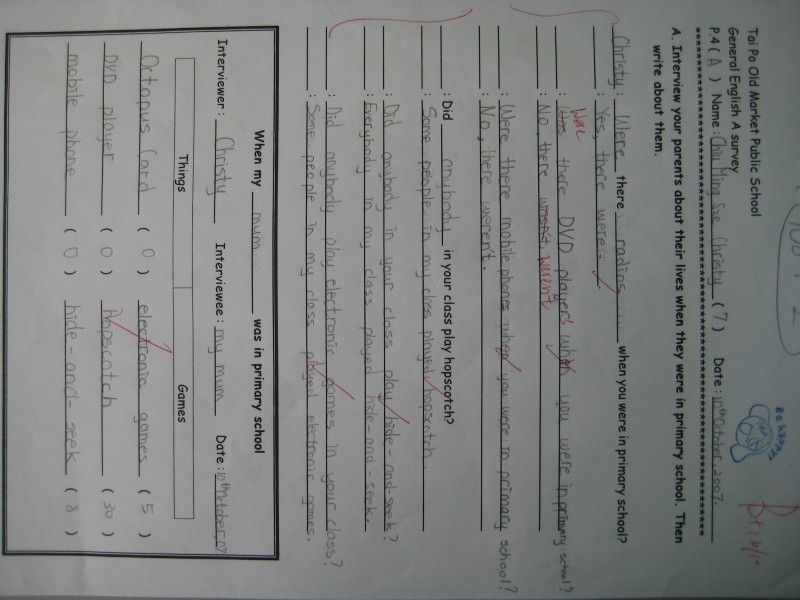 Tai Po Old Market Public School
General English A survey
P.4 ( A ) Name : Chiu Ming Sze Christy ( 7 ) Date : 10th October, 2007.
A. Interview your parents about their lives when they were in primary school. Then
write about them.
Christy : Were there radios when you were in primary school?
: Yes, there were.
Were
: Was there DVD players when you were in primary school?
: No, there wasn't weren't
: Were there mobile phones when you were in primary school?
: No, there weren't.
: Did anybody in your class play hopscotch?
: Some people in my class played hopscotch.
: Did anybody in your class play hide-and-seek?
: Everybody in my class played hide-and-seek.
: Did anybody play electronic games in your class?
: Some people in my class played electronic games.
When my mum was in primary school
Interviewer : Christy Interviewee : my mum Date : 10th October, 07
Things Games
Octopus Card ( 0 ) electronic games ( 5 )
DVD player ( 0 ) Hopscotch ( 30 )
mobile phone ( 0 ) hide-and-seek ( 8 )